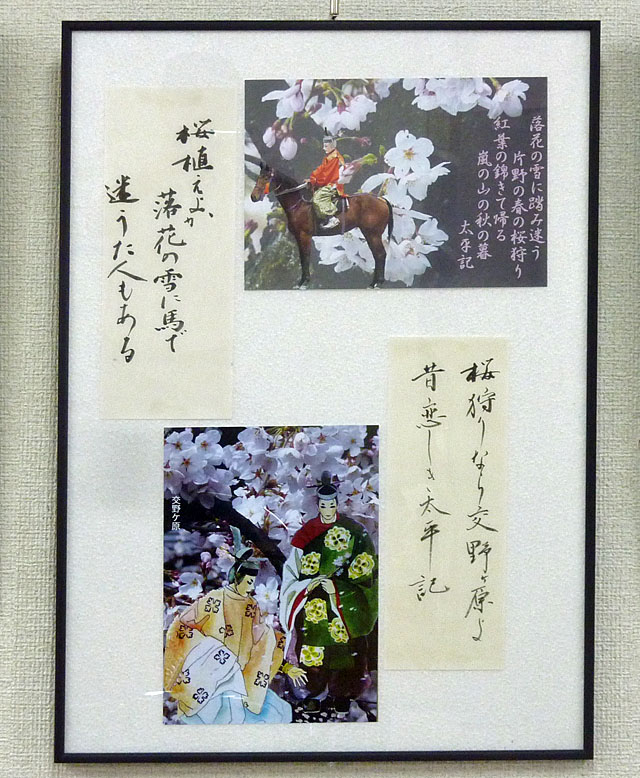 桜植えよか
落花の雪に馬で
迷うた人もある
落花の雪に踏み迷う
片野の春の桜狩り
紅葉の錦きて帰る
嵐の山の秋の暮
太平記
桜狩りなら交野ヶ原よ
昔恋しき太平記
交野ケ原